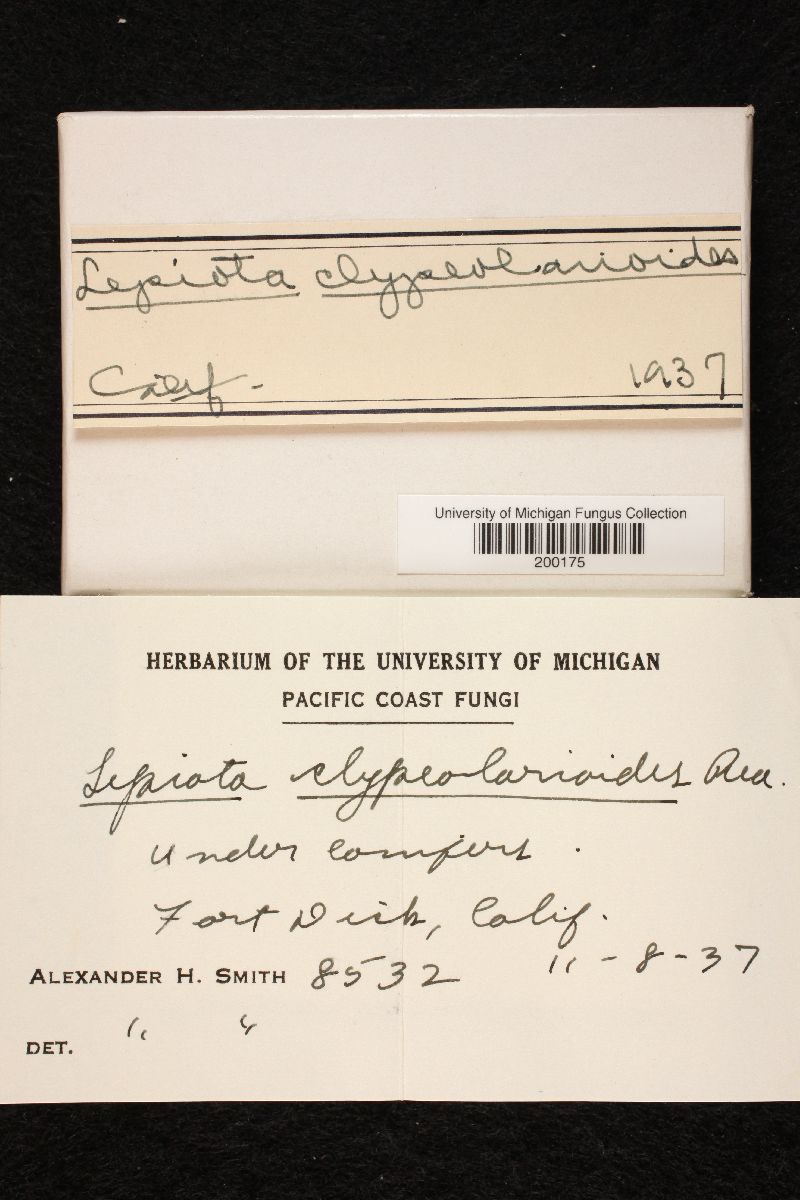 Lepiota clypeolarioides
Calif. 1937
University of Michigan Fungus Collection
200175
HERBARIUM OF THE UNIVERSITY OF MICHIGAN
PACIFIC COAST FUNGI
Lepiota clypeolarioides Rea.
Under conifers.
Fort Dick, Calif.
ALEXANDER H. SMITH 8532 11-8-37
DET. " "